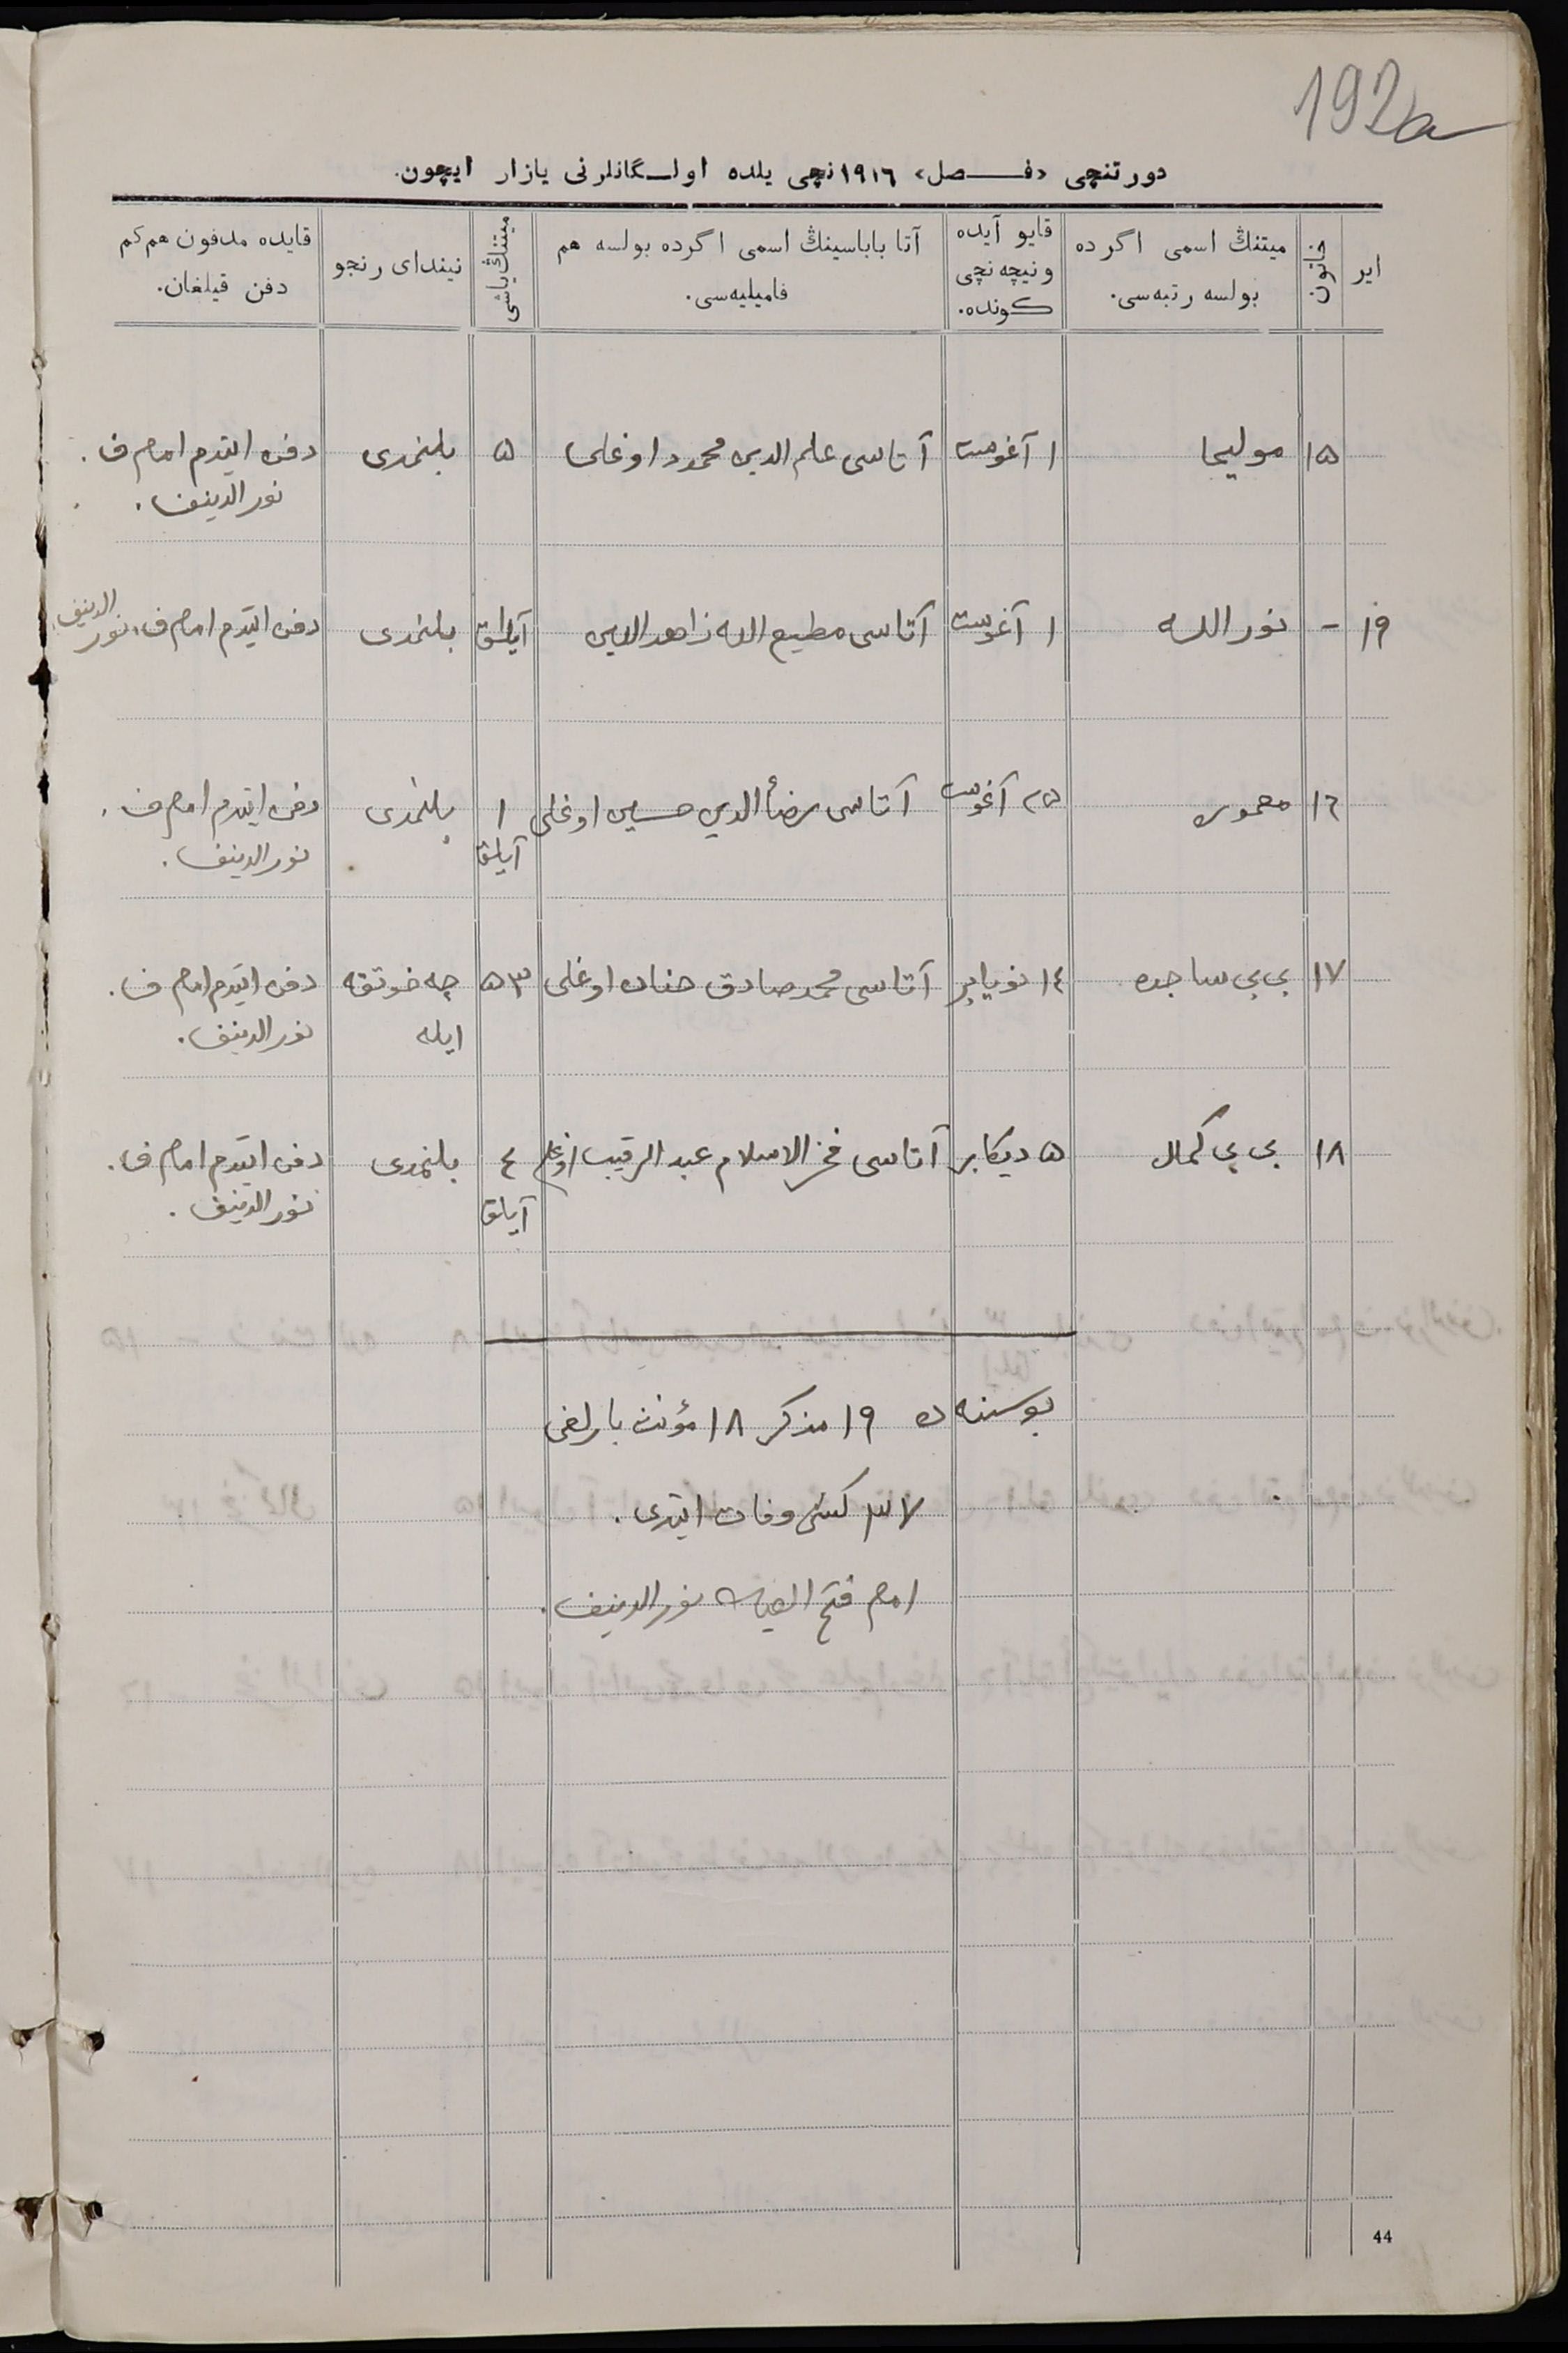 192a
دورتنچی «فـــصل» ۱۹۱٦ نچی یلده اولـــگانلرنی یازار ایچون.
ایر
خاتون
میتنڭ اسمی اگرده
بولسه رتبه‌سی.
قایو آیده
ونیچه نچی
کونده.
آتا باباسینڭ اسمی اگرده بولسه هم
فامیلیه‌سی.
میتنڭ یاشی
نیندای رنجو
قایده مدفون هم کم
دفن قیلغان.
۱۵ مولیحا ۱ آغوست آتاسی علم الدین محمود اوغلی ۵ بلنمدی دفن ایتدم امام ف.
نورالدینف.
۱۹ - نورالله ۱ آغوست آتاسی مطیع الله زاهدالدین آیلق بلنمدی دفن ایتدم امام ف. نور
الدینف.
۱٦ معموره ۲۵ آغوست آتاسی رضأالدین حسین اوغلی ۱ بلنمدی دفن ایتدم امام ف.
آیلق نورالدینف.
۱۷ بی بی ساجده ۱٤ نویابر آتاسی محمد صادق حنان اوغلی ۵۳ چه خوتقه دفن ایتدم امام ف.
ایله نورالدینف.
۱۸ بی بی کمال ۵ دیکابر آتاسی فخرالاسلام عبدالرقیب اوغلی ٤ بلنمدی دفن ایتدم امام ف.
آیلق نورالدینف.
بوسنه ده ۱۹ مذکر ۱۸ مؤنث بارلغی
۳۷ کشی وفات ایتدی.
امام فتح نورالدینف.
44